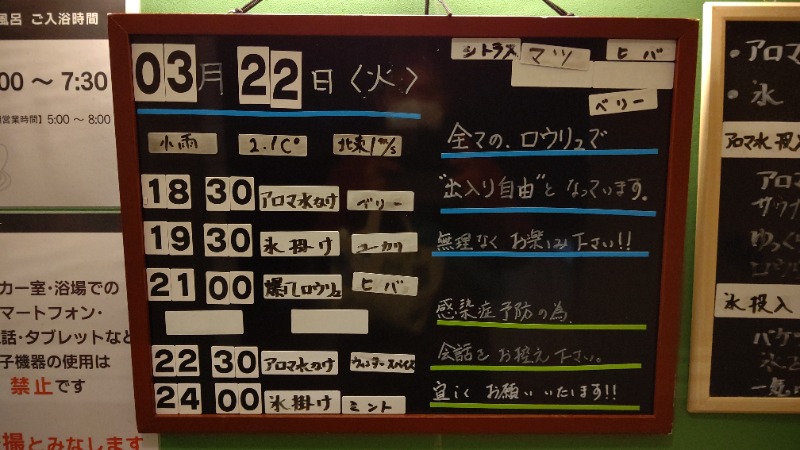 風呂 ご入浴時間
00 ～ 7:30
営業時間】5:00 ～ 8:00
カー室・浴場での
マートフォン・
話・タブレットなど
子機器の使用は
禁止です
撮とみなします
03月22日〈火〉
小雨 2.1C° 北東1m/s
18 30 アロマ水かけ ベリー
19 30 氷掛け ユーカリ
21 00 爆風ロウリュ ヒバ
22 30 アロマ水かけ ウィンタースパイス
24 00 氷掛け ミント
シトラス マツ ヒバ
ベリー
全ての、ロウリュで
"出入り自由"となっています。
無理なくお楽しみ下さい!!
感染症予防の為、
会話をお控え下さい。
宜しくお願いいたします!!
・アロマ
・氷
アロマ水投入
アロマ
サウナ
ゆっく
ロウリ
氷投入
バケ
氷を
一気に